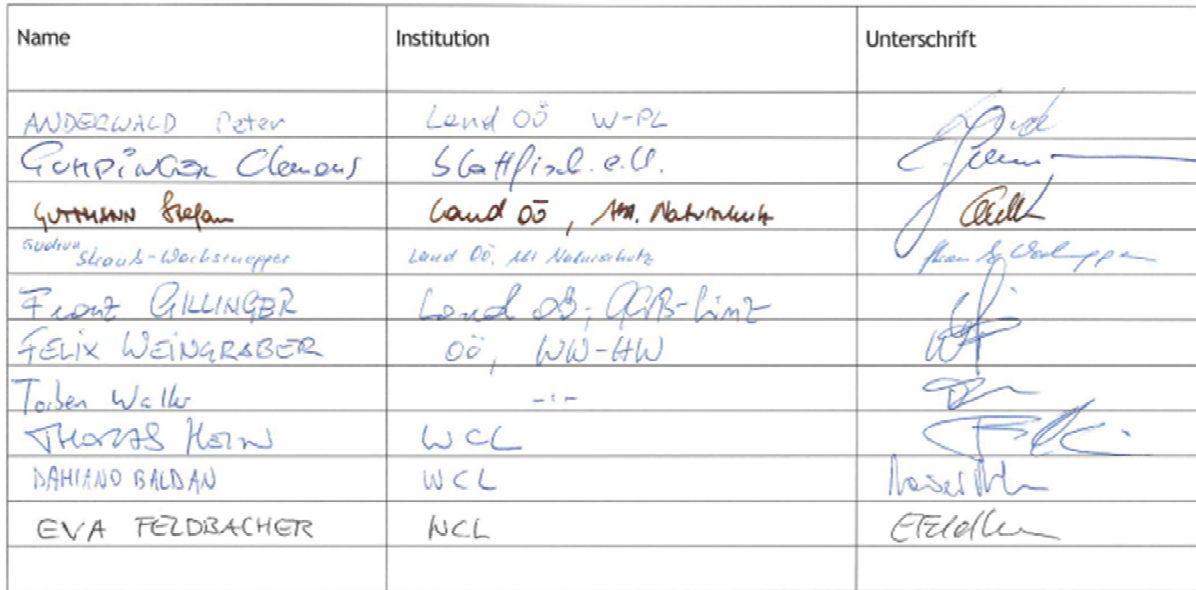 Name Institution Unterschrift
ANDERWALD Peter Land OÖ W-PL
GUMPINGER Clemens blattfisch e.U.
GUTTMANN Stefan Land OÖ, Abt. Naturschutz
Gudrun Strauß-Wachsenegger Land OÖ, Abt Naturschutz
Franz GILLINGER Land OÖ, GWB-Linz
FELIX WEINGRABER OÖ, WW-HW
Torben Walter -:-
THOMAS HEIN WCL
DAMIANO BALDAN WCL
EVA FELDBACHER WCL